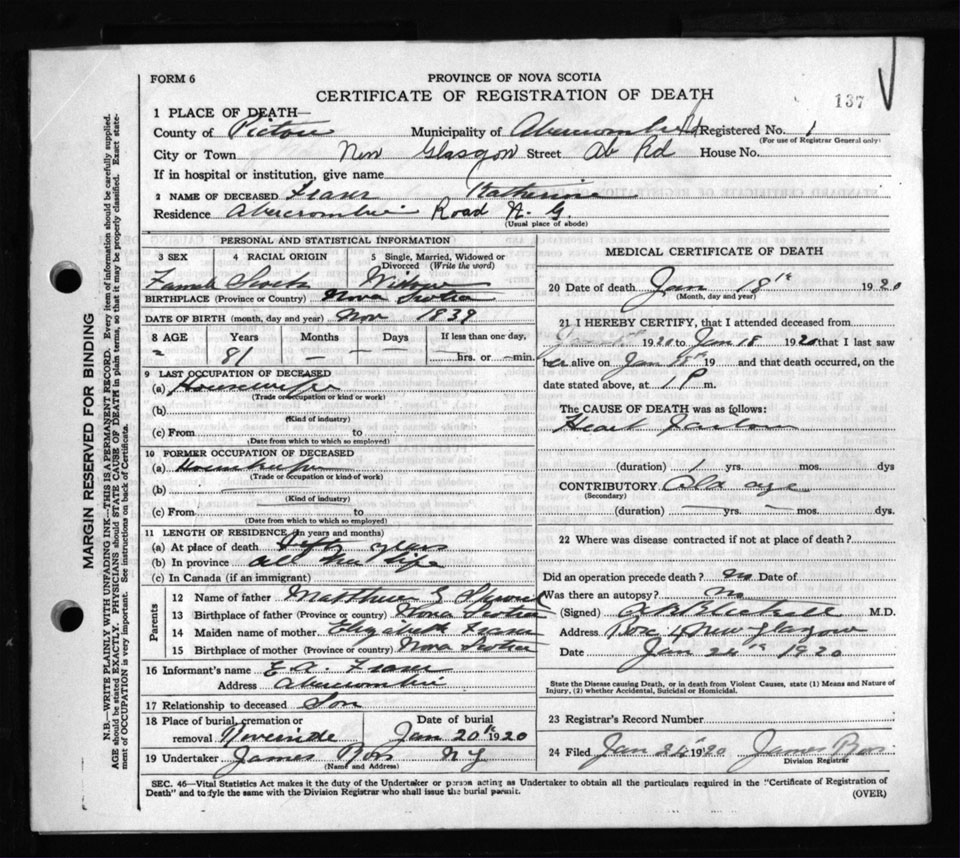 FORM 6
PROVINCE OF NOVA SCOTIA
CERTIFICATE OF REGISTRATION OF DEATH
137
1 PLACE OF DEATH—
County of Pictou Municipality of Abercrombie Rd Registered No. 1
(For use of Registrar General only)
City or Town New Glasgow Street Ab Rd House No.
If in hospital or institution, give name
2 NAME OF DECEASED Fraser Katherine
Residence Abercrombie Road N. G.
(Usual place of abode)
MARGIN RESERVED FOR BINDING
N.B.—WRITE PLAINLY WITH UNFADING INK—THIS IS A PERMANENT RECORD. Every item of information should be carefully supplied.
AGE should be stated EXACTLY. PHYSICIANS should STATE CAUSE OF DEATH in plain terms, so that it may be properly classified. Exact state-
ment of OCCUPATION is very important. See instructions on back of Certificate.
PERSONAL AND STATISTICAL INFORMATION
3 SEX 4 RACIAL ORIGIN 5 Single, Married, Widowed or
Divorced (Write the word)
Female Scotch Widow
BIRTHPLACE (Province or Country) Nova Scotia
DATE OF BIRTH (month, day and year) Nov 1839
8 AGE Years Months Days If less than one day,
" 81 — — —hrs. or —min.
9 LAST OCCUPATION OF DECEASED
(a) Housewife
(Trade or occupation or kind of work)
(b)
(Kind of industry)
(c) From to
(Date from which to which so employed)
10 FORMER OCCUPATION OF DECEASED
(a) Housekeeper
(Trade or occupation or kind of work)
(b)
(Kind of industry)
(c) From to
(Date from which to which so employed)
11 LENGTH OF RESIDENCE (In years and months)
(a) At place of death Fifty years
(b) In province all her life
(c) In Canada (if an immigrant)
Parents
12 Name of father Matthew
13 Birthplace of father (Province or country) Nova Scotia
14 Maiden name of mother Elizabeth Fraser
15 Birthplace of mother (Province or country) Nova Scotia
16 Informant's name E. A. Fraser
Address Abercrombie
17 Relationship to deceased Son
18 Place of burial, cremation or
removal Riverside
Date of burial
Jan 20th 1920
19 Undertaker James Ross N G
(Name and Address)
MEDICAL CERTIFICATE OF DEATH
20 Date of death Jan 18th 1920
(Month, day and year)
21 I HEREBY CERTIFY, that I attended deceased from
1920 to Jan 18 1920 that I last saw
her alive on Jan 18th 19 and that death occurred, on the
date stated above, at 1 P m.
The CAUSE OF DEATH was as follows:
Heart
(duration) 1 yrs. mos. dys
CONTRIBUTORY Old age
(Secondary)
(duration) — yrs. — mos. dys.
22 Where was disease contracted if not at place of death?
Did an operation precede death? no Date of
Was there an autopsy? no
(Signed) M.D.
Address Box 4 New Glasgow
Date Jan 24th 1920
State the Disease causing Death, or in death from Violent Causes, state (1) Means and Nature of
Injury, (2) whether Accidental, Suicidal or Homicidal.
23 Registrar's Record Number
24 Filed Jan 24 1920 James Ross
Division Registrar
SEC. 46—Vital Statistics Act makes it the duty of the Undertaker or person acting as Undertaker to obtain all the particulars required in the "Certificate of Registration of
Death" and to fyle the same with the Division Registrar who shall issue the burial permit.
(OVER)